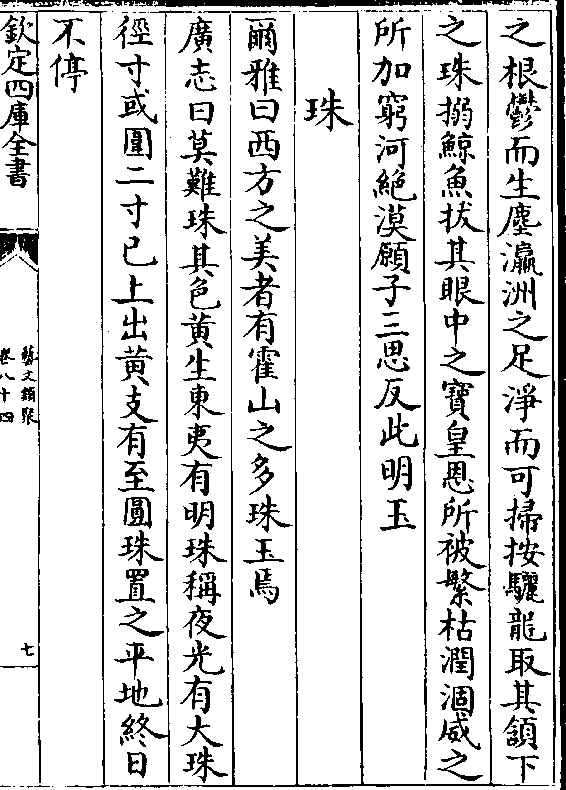 之根鬱而生塵瀛洲之足淨而可掃按驪龍取其頷下
之珠搦鯨魚拔其眼中之寶皇恩所被繄枯潤涸威之
所加窮河絶漠願子三思反此明玉
珠
爾雅曰西方之美者有霍山之多珠玉焉
廣志曰莫難珠其色黄生東夷有明珠稱夜光有大珠
徑寸或圍二寸已上出黄支有至圓珠置之平地終日
不停
欽定四庫全書
藝文類聚
卷八十四
七